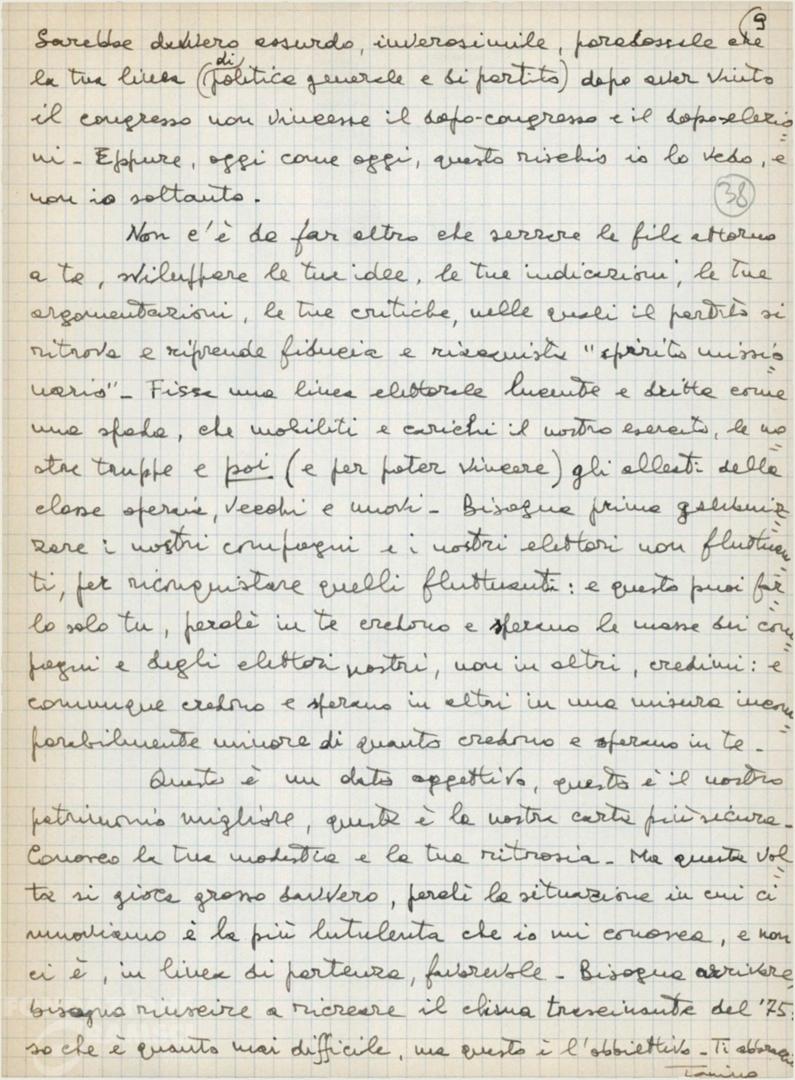 9
Sarebbe davvero assurdo, inverosimile, paradossale che
la tua linea (di politica generale e di partito) dopo aver vinto
il congresso non vincesse il dopo-congresso e il dopoelezio=
ni - Eppure, oggi come oggi, questo rischio io lo vedo, e
non io soltanto.
38
Non c'è da far altro che serrare le file attorno
a te, sviluppare le tue idee, le tue indicazioni, le tue
argomentazioni, le tue critiche, nelle quali il partito si
ritrova e riprende fiducia e riacquista "spirito missio=
nario" - Fissa una linea elettorale lucente e dritta come
una spada, che mobiliti e carichi il nostro esercito, le no=
stre truppe e poi (e per poter vincere) gli alleati della
classe operaia, vecchi e nuovi - Bisogna prima galvaniz=
zare i nostri compagni e i nostri elettori non fluttuan=
ti, per riconquistare quelli fluttuanti: e questo puoi far=
lo solo tu, perchè in te credono e sperano le masse dei com=
pagni e degli elettori nostri, non in altri, credimi: e
comunque credono e sperano in altri in una misura incom=
parabilmente minore di quanto credono e sperano in te -
Questo è un dato oggettivo, questo è il nostro
patrimonio migliore, questa è la nostra carta più sicura -
Conosco la tua modestia e la tua ritrosia - Ma questa vol=
ta si gioca grosso davvero, perchè la situazione in cui ci
muoviamo è la più lutulenta che io mi conosca, e non
ci è, in linea di partenza, favorevole - Bisogna arrivare,
bisogna riuscire a ricreare il clima trascinante del '75:
so che è quanto mai difficile, ma questo è l'obbiettivo - Ti abbraccio
Tonino